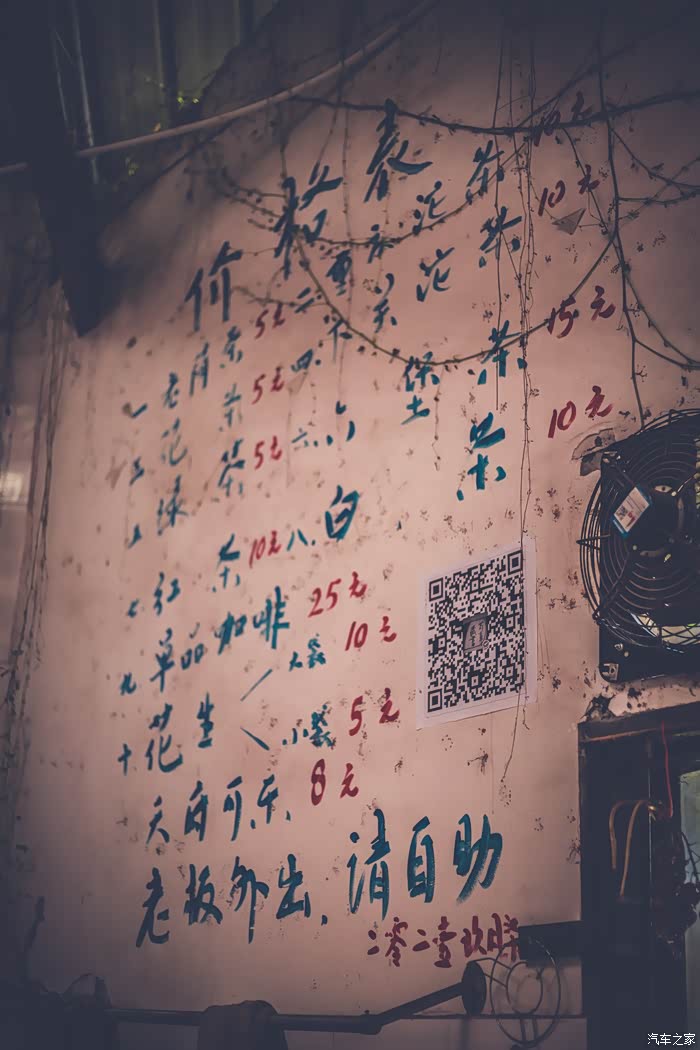 价格表
一、老荫茶 5元 二、重庆沱茶 10元
三、花茶 5元 四、沱茶 10元
五、绿茶 5元 六、茶 15元
七、红茶 10元 八、白茶 10元
九、单品咖啡 25元
十、花生 大袋 10元
小袋 5元
天府可乐 8元
老板外出，请自助
二零二壹玖月
汽车之家